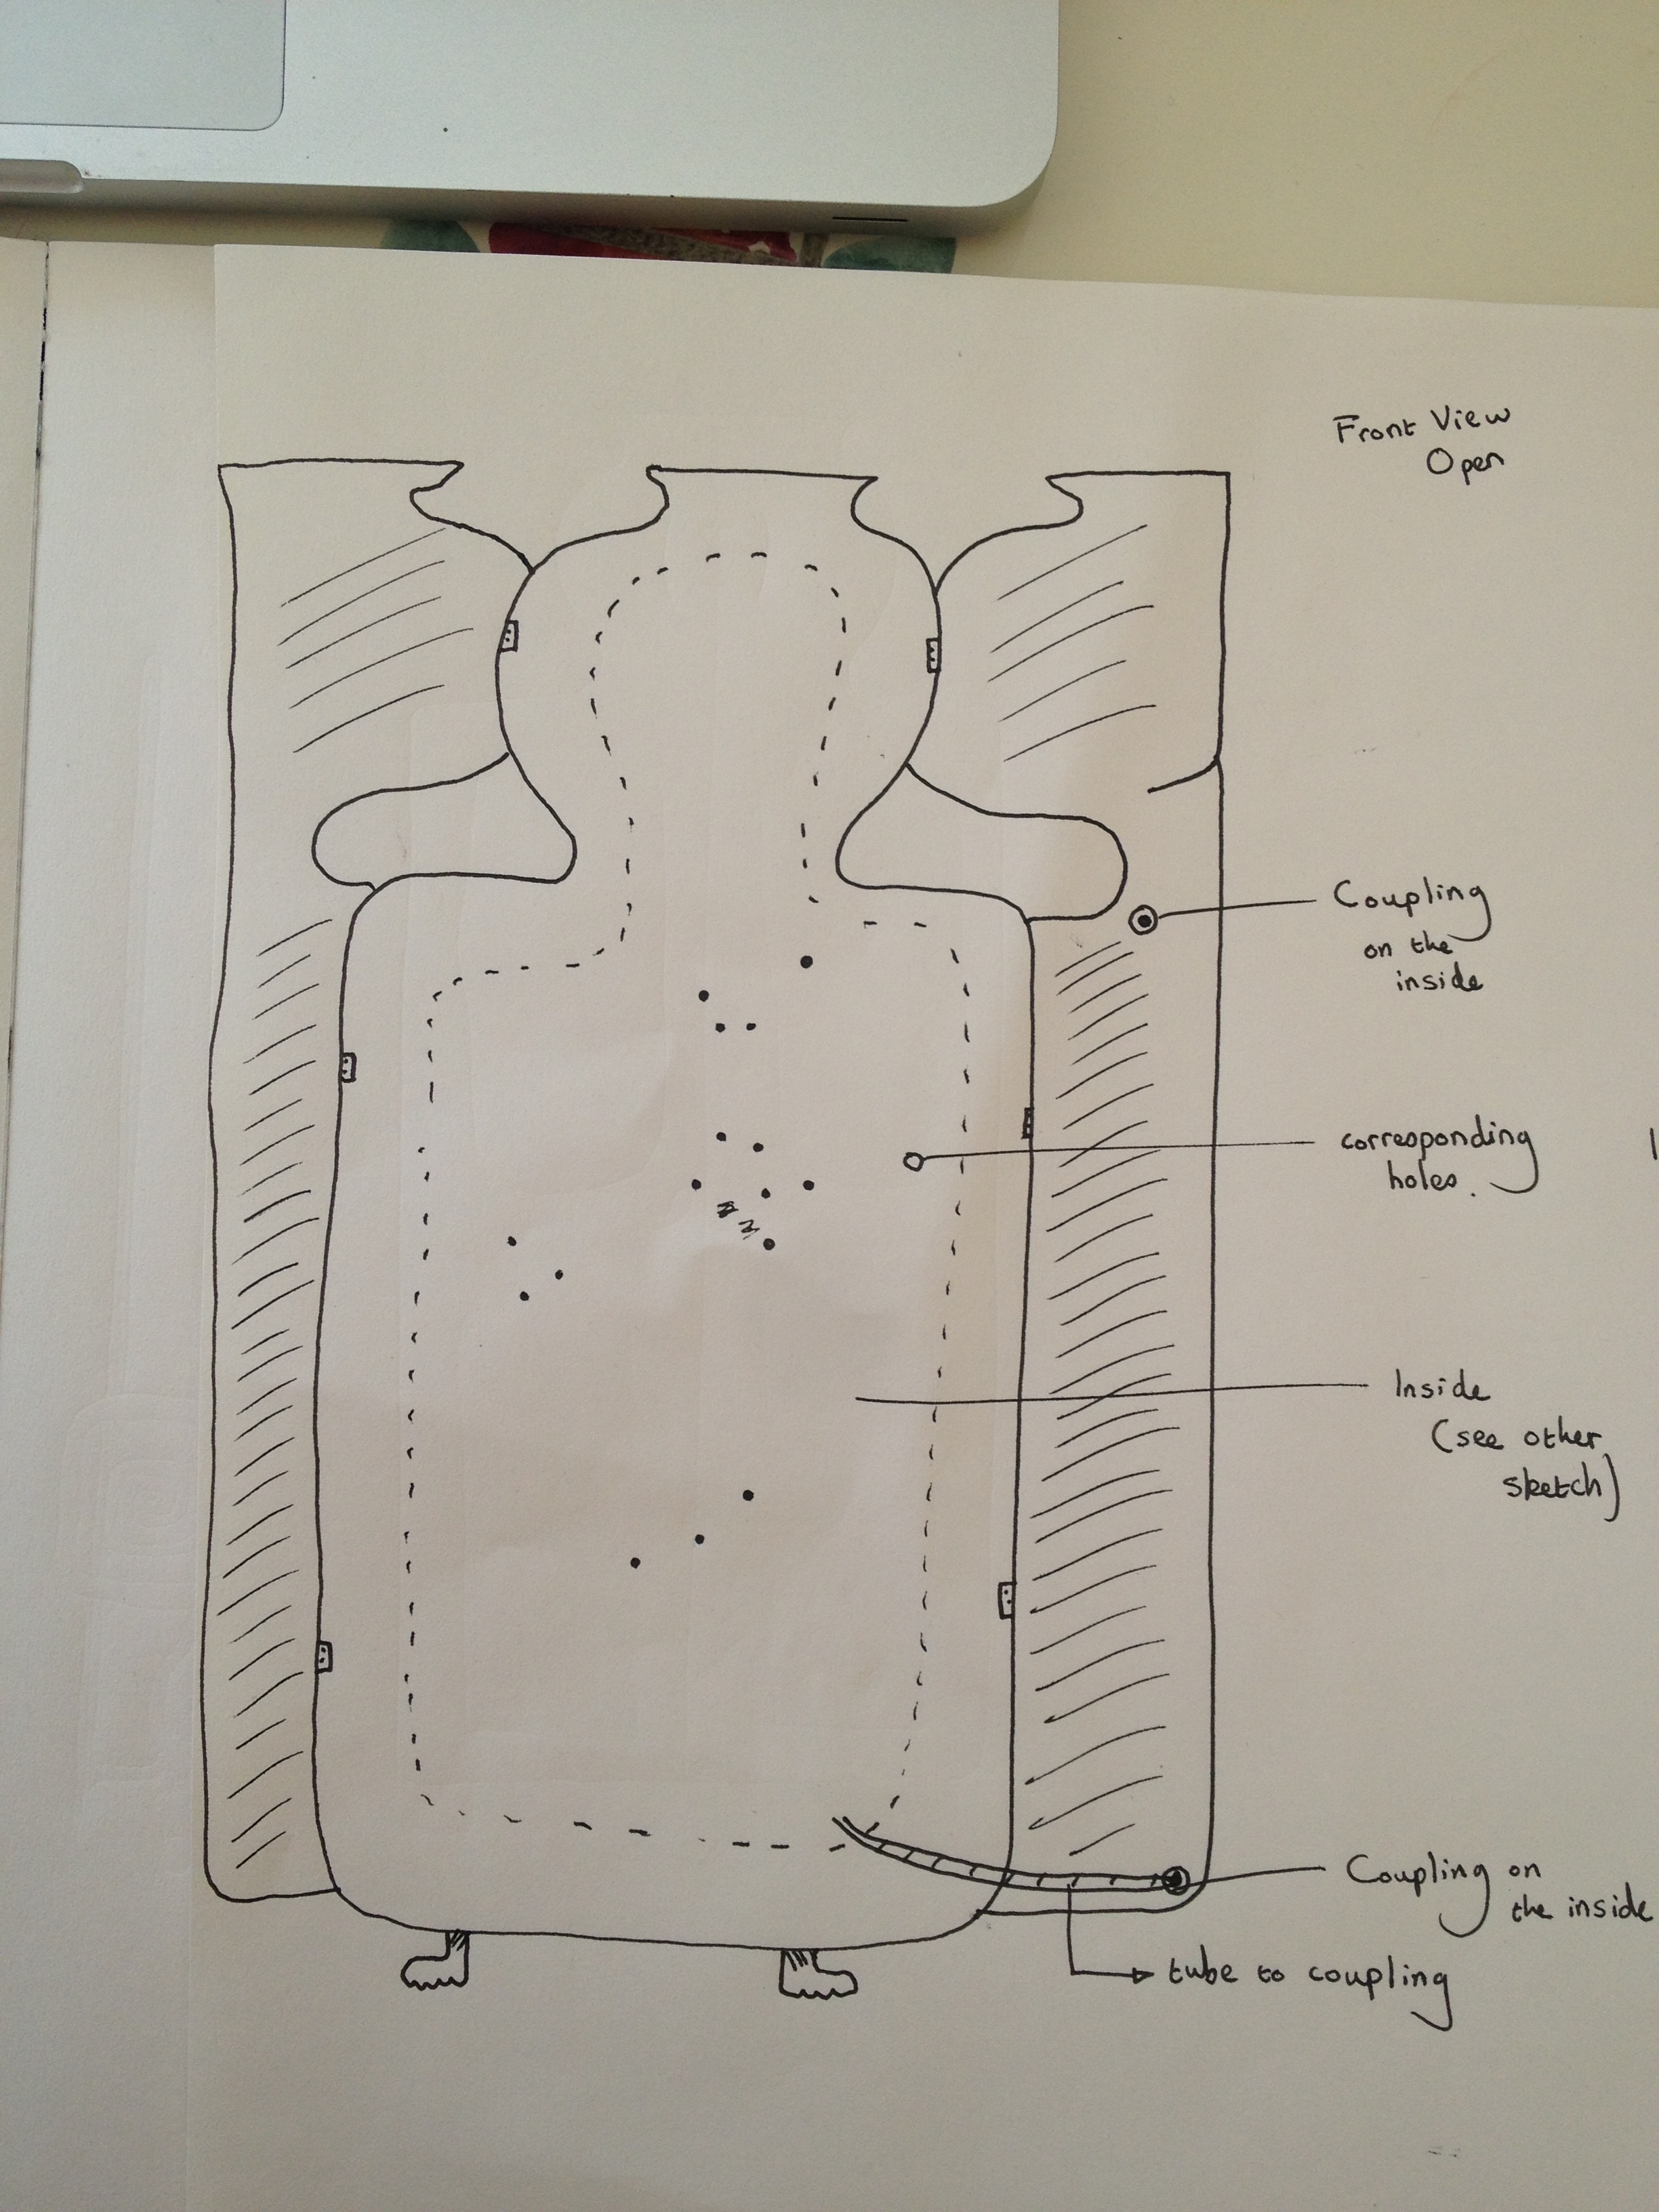 Front View
Open
Coupling
on the
inside
corresponding
holes.
Inside
(see other
sketch)
Coupling on
the inside
tube to coupling